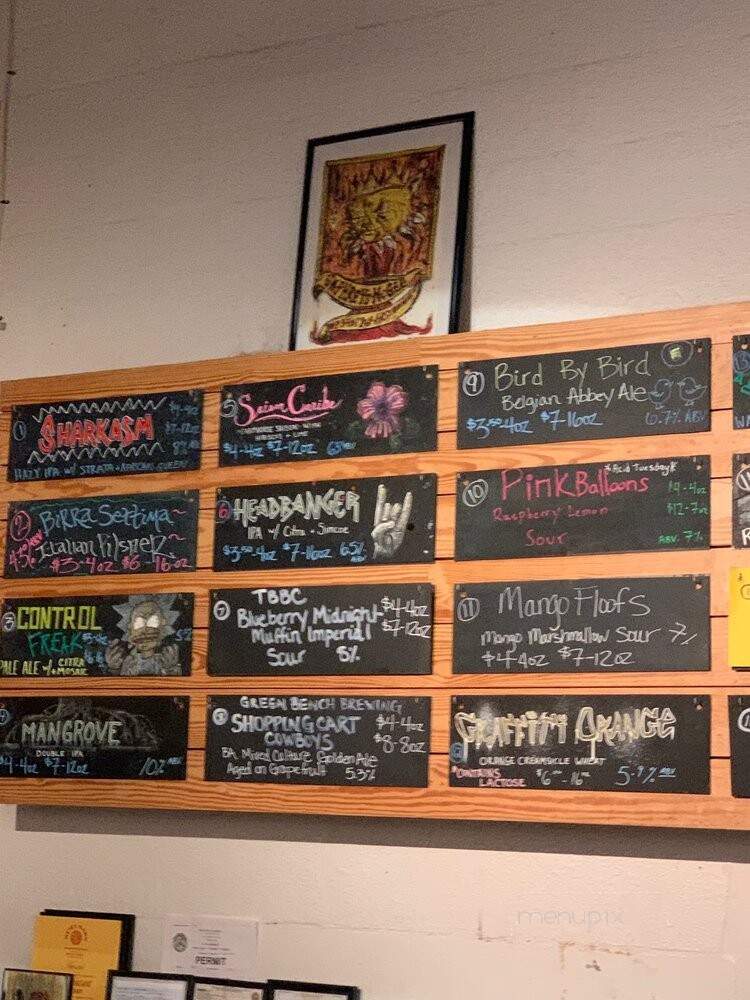 SHARKASM
$7-12oz
HAZY IPA w/ STRATA + AFRICAN QUEEN
2
BIRRA SETTIMA
Italian Pilsner
$3-4oz $6-16oz
3
CONTROL
FREAK
PALE ALE w/ CITRA
+ MOSAIC
MANGROVE
DOUBLE IPA
$4-4oz $7-12oz 10% ABV
5
Saison Caribe
FARMHOUSE SAISON WITH
HIBISCUS + LIME
$4-4oz $7-12oz
6
HEADBANGER
IPA w/ Citra + Simcoe
$3.50-4oz $7-16oz 6.5% ABV
7
TBBC
Blueberry Midnight
Muffin Imperial
Sour 8%
$4-4oz
$7-12oz
8
GREEN BENCH BREWING
SHOPPING CART
COWBOYS
$4-4oz
$8-8oz
BA Mixed Culture Golden Ale
Aged on Grapefruit 5.3%
9
Bird By Bird
Belgian Abbey Ale
$3.50-4oz $7-16oz 6.7% ABV
10
*Acid Tuesday*
Pink Balloons
Raspberry Lemon
Sour
$4-4oz
ABV. 7%
11
Mango Floofs
Mango Marshmallow Sour 7%
$4-4oz $7-12oz
GRAFFITI ORANGE
ORANGE CREAMSICLE WHEAT
*CONTAINS
LACTOSE
$6-16oz 5.9% ABV
PERMIT
menupix